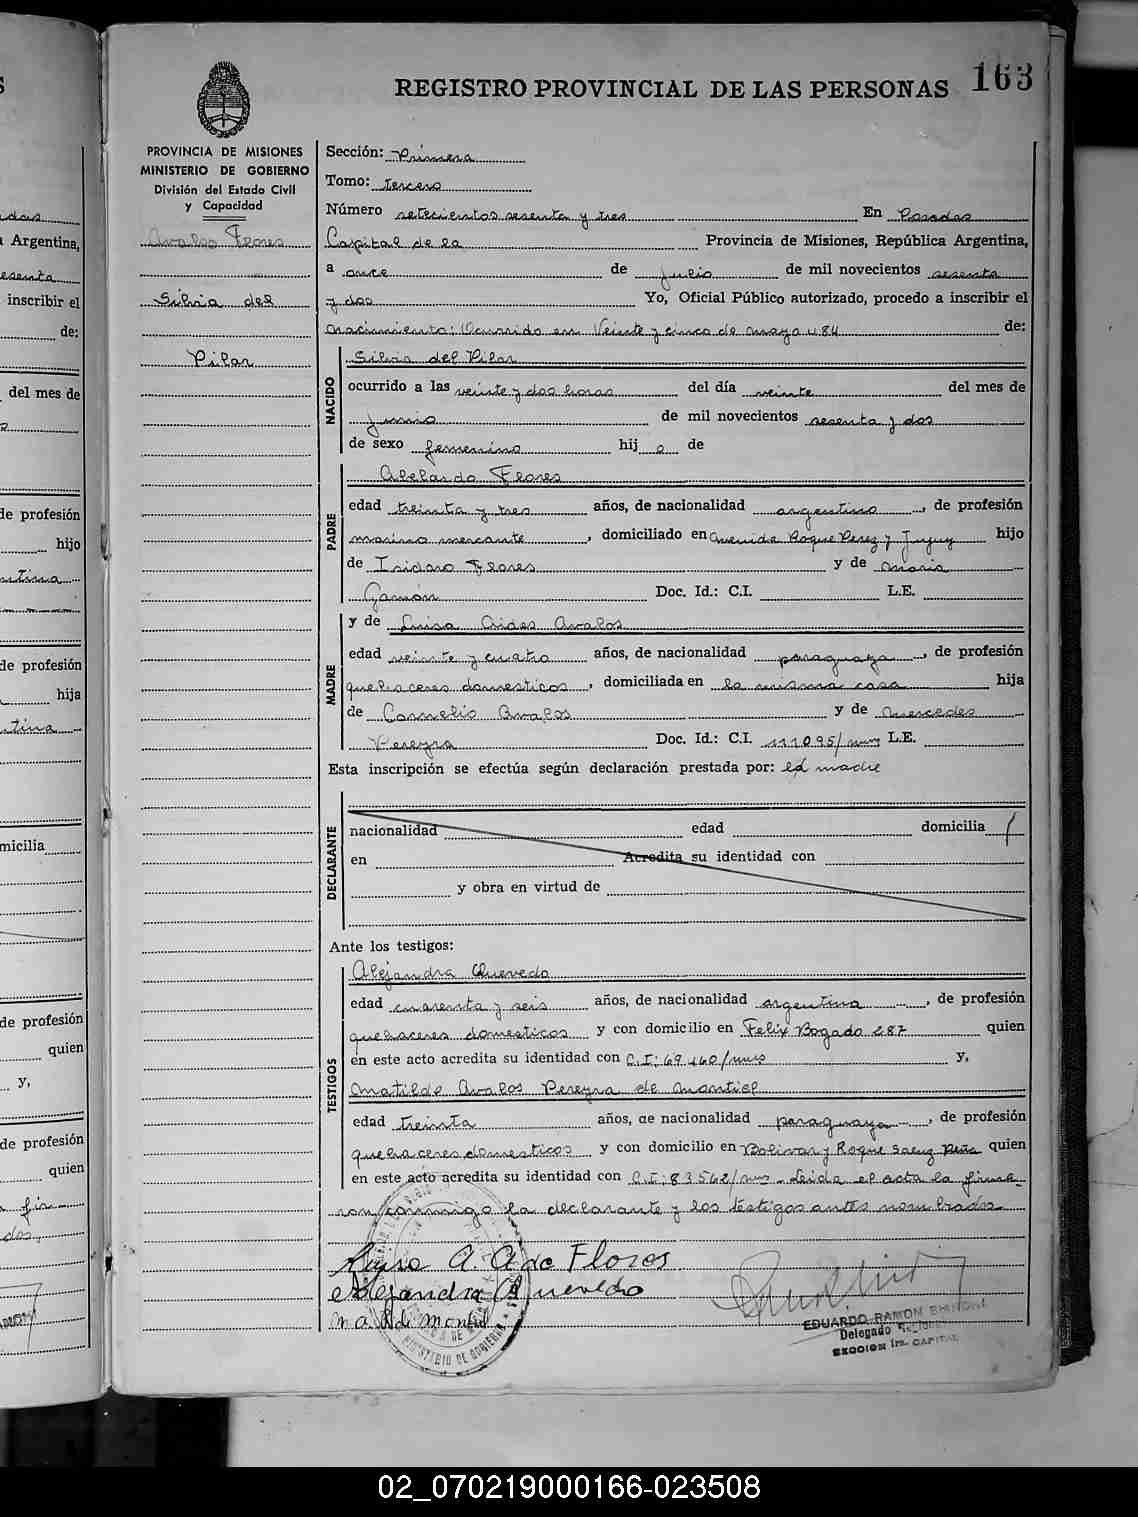 REGISTRO PROVINCIAL DE LAS PERSONAS 163
PROVINCIA DE MISIONES
MINISTERIO DE GOBIERNO
División del Estado Civil
y Capacidad
Avalos Flores
Silvia del
Pilar
Sección: Primera
Tomo: tercero
Número setecientos sesenta y tres En Posadas
Capital de la Provincia de Misiones, República Argentina,
a once de Julio de mil novecientos sesenta
y dos Yo, Oficial Público autorizado, procedo a inscribir el
nacimiento: Ocurrido en Veinte y cinco de mayo 484 de:
NACIDO
Silvia del Pilar
ocurrido a las veinte y dos horas del día veinte del mes de
Junio de mil novecientos sesenta y dos
de sexo femenino hij a de
PADRE
Abelardo Flores
edad treinta y tres años, de nacionalidad argentino, de profesión
marino mercante, domiciliado en Avenida Roque Perez y Jujuy hijo
de Isidoro Flores y de Maria
Gamón Doc. Id.: C.I. L.E.
MADRE
y de Luisa Aides Avalos
edad veinte y cuatro años, de nacionalidad paraguaya, de profesión
quehaceres domesticos, domiciliada en la misma casa hija
de Cornelio Avalos y de Mercedes
Pereyra Doc. Id.: C.I. 111095/mns L.E.
Esta inscripción se efectúa según declaración prestada por: la madre
DECLARANTE
nacionalidad edad domicilia
en Acredita su identidad con
y obra en virtud de
Ante los testigos:
TESTIGOS
Alejandra Quevedo
edad cuarenta y seis años, de nacionalidad argentina, de profesión
quehaceres domesticos y con domicilio en Felix Bogado 287 quien
en este acto acredita su identidad con C.I: 69460/mns y,
Matilde Avalos Pereyra de Montiel
edad treinta años, de nacionalidad paraguaya, de profesión
quehaceres domesticos y con domicilio en Bolivar y Roque Saenz Peña quien
en este acto acredita su identidad con C.I: 83562/mns - Leida el acta la firma-
ron conmigo la declarante y los testigos antes nombrados.
A. A de Flores
Alejandra Quevedo
EDUARDO RAMON
Delegado
SECCION 1ra. CAPITAL
MINISTERIO DE GOBIERNO
02_070219000166-023508